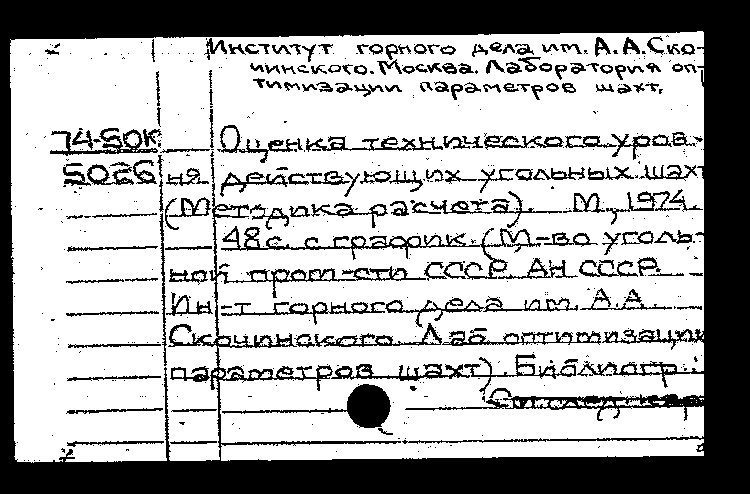 Институт горного дела им. А.А.Ско-
чинского. Москва. Лаборатория оп-
тимизации параметров шахт.
74-50К Оценка технического уров-
5026 ня действующих угольных шахт
(Методика расчета). М., 1974.
48 с. с график. (М-во уголь-
ной пром-сти СССР. АН СССР.
Ин-т горного дела им. А.А.
Скочинского. Лаб оптимизации
параметров шахт). Библиогр.:
См след. кар